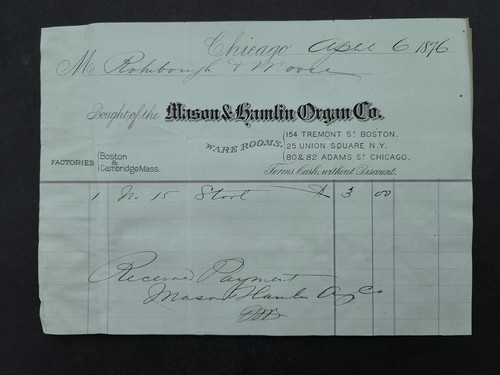 Chicago April 6 1876
M Rohrbough & Moore
Bought of the Mason & Hamlin Organ Co.
WARE ROOMS.
154 TREMONT ST. BOSTON.
25 UNION SQUARE N.Y.
80 & 82 ADAMS ST. CHICAGO.
FACTORIES
Boston
&
Cambridge Mass.
Terms Cash, without Discount.
1 No. 15 Stool $ 3 00
Received Payment
Mason Hamlin Org Co